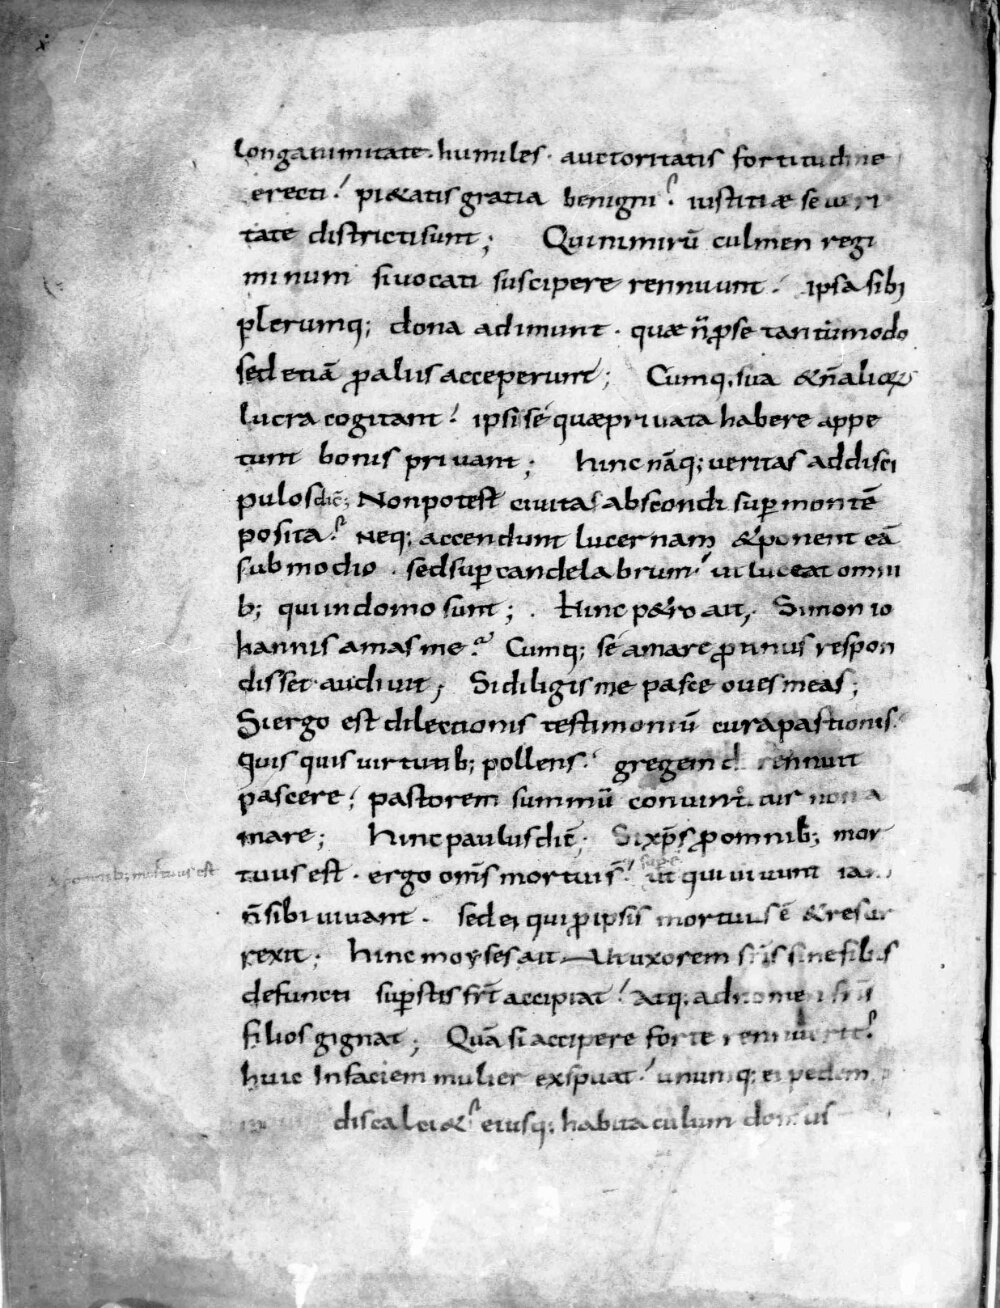 longanimitate. humiles. auctoritatis fortitudine
erecti! pi&atis gratia benigni? iustitiae seueri
tate districti sunt; Qui nimirū culmen regi
minum si uocati suscipere rennuunt. ipsa sibi
plerumq; dona adimunt. quae n̄ ꝓ se tantumodo
sed etiā ꝓ aliis acceperunt; Cumq, sua & n̄ alioꝝ
lucra cogitant! ipsi sé quae priuata habere appe
tunt bonis priuant; hinc nāq; ueritas ad disci
pulos dic̄; Non potest ciuitas abscondi suꝑ montē
posita? Neq; accendunt lucernam & ponent eā
sub modio. sed suꝑ candelabrum! ut luceat omni
b; qui in domo sunt; . Hinc p&ro ait, Simon io
hannis amas me? Cumq; sé amare ꝓtinus respon
disset audiuit; Si diligis me pasce oues meas;
Si ergo est dilectionis testimoniū cura pastionis.
quis quis uirtutib; pollens! gregem d rennuit
pascere; pastorem summū conuinc̄. cur non a
mare; Hinc paulus dic̄; Si xp̄s ꝓ omnib; mor
ꝓ omnib; mortuus est
tuus est. ergo om̄s mortui s̄! ut qui uiuunt iam
n̄ sibi uiuant. sed ei qui ꝓ ipsis mortuus ē & resur
rexit; Hinc moyses ait. Ut uxorem fr̄is sine filiis
defuncti suꝑstis fr̄t accipiat! Atq; ad nomen fr̄is
filios gignat; Quā si accipere forte rennuerit?
huic In faciem mulier exspuat! unumq; ei pedem
discalci&? eiusq; habitaculum domus